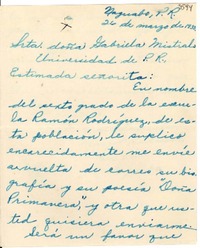 Naguabo, P. R.
26 de marzo de 193
Srta. doña Gabriela Mistral
Universidad de P. R.
Estimada señorita:
En nombre
del sexto grado de la escue-
la Ramón Rodríguez, de es-
ta población, le suplico
encarecidamente me envíe
a vuelta de correo su bio-
grafía y su poesía "Doña
Primavera", y otra que us-
ted quisiera enviarme.
Será un favor que